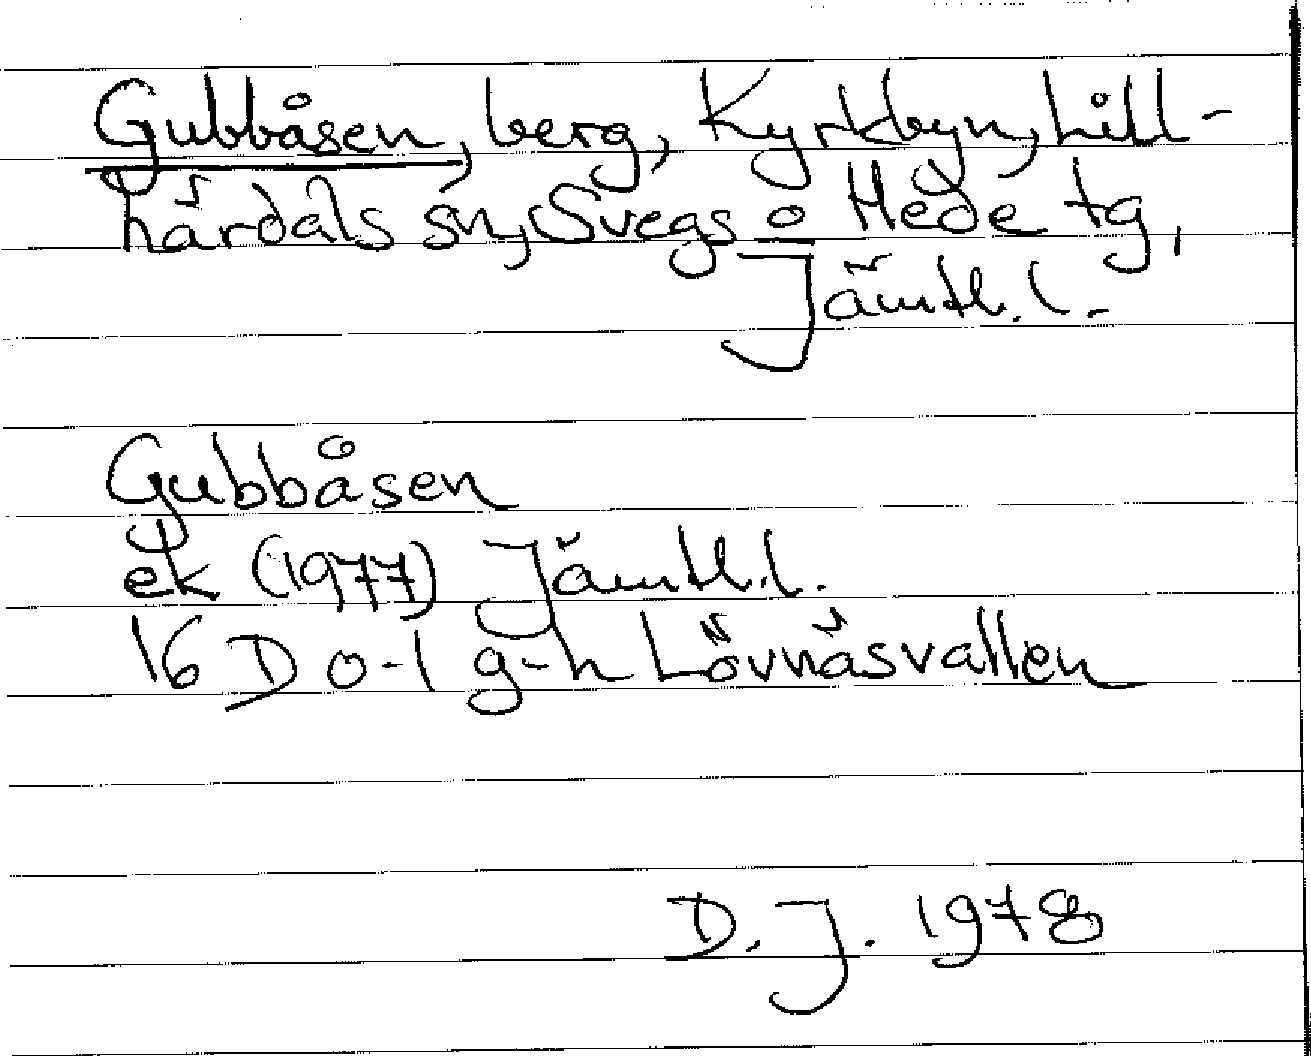 Gubbåsen, berg, Kyrkbyn, Lill-
härdals sn, Svegs o Hede tg,
Jämtl. l.
Gubbåsen
ek (1977) Jämtl. l.
16 D 0-1 g-h Lövnäsvallen
D. J. 1978